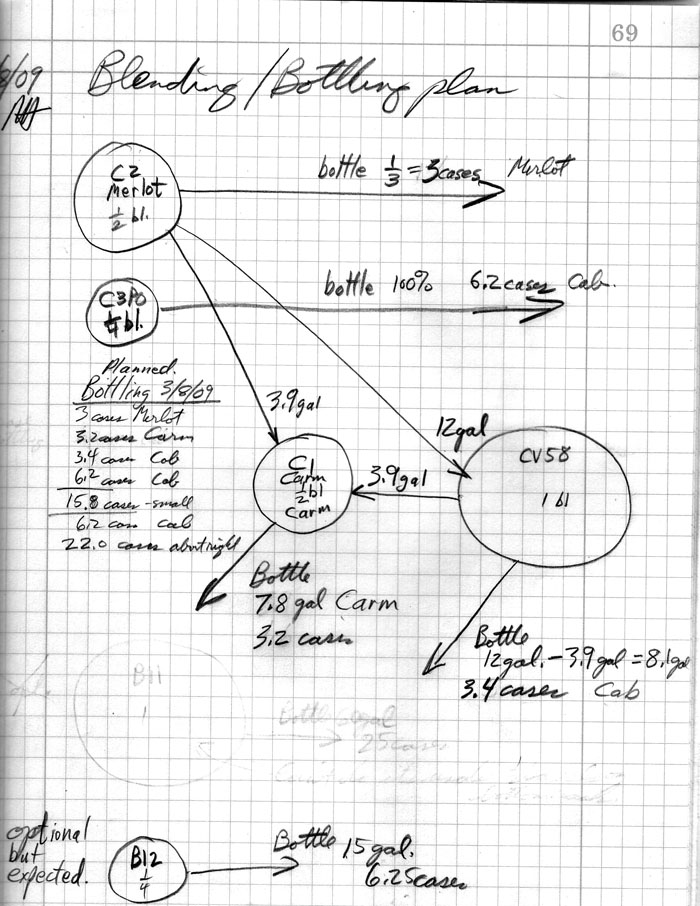 69
8/09
Blending/Bottling plan
C2
Merlot
1/2 bl.
bottle 1/3 = 3 cases Merlot
C3P0
1/4 bl.
bottle 100% 6.2 cases Cab.
Planned.
Bottling 3/8/09
3 cases Merlot
3.2 cases Carm
3.4 cases Cab
6.2 cases Cab
15.8 cases - small
6.2 cases cab
22.0 cases about right
3.9 gal
12 gal
C1
Carm
1/2 bl
Carm
3.9 gal
CV58
1 bl
Bottle
7.8 gal Carm
3.2 cases
Bottle
12 gal. - 3.9 gal = 8.1 gal
3.4 cases Cab
B11
1
Bottle 60 gal
25 cases
optional
but
expected.
B12
1/4
Bottle 15 gal.
6.25 cases